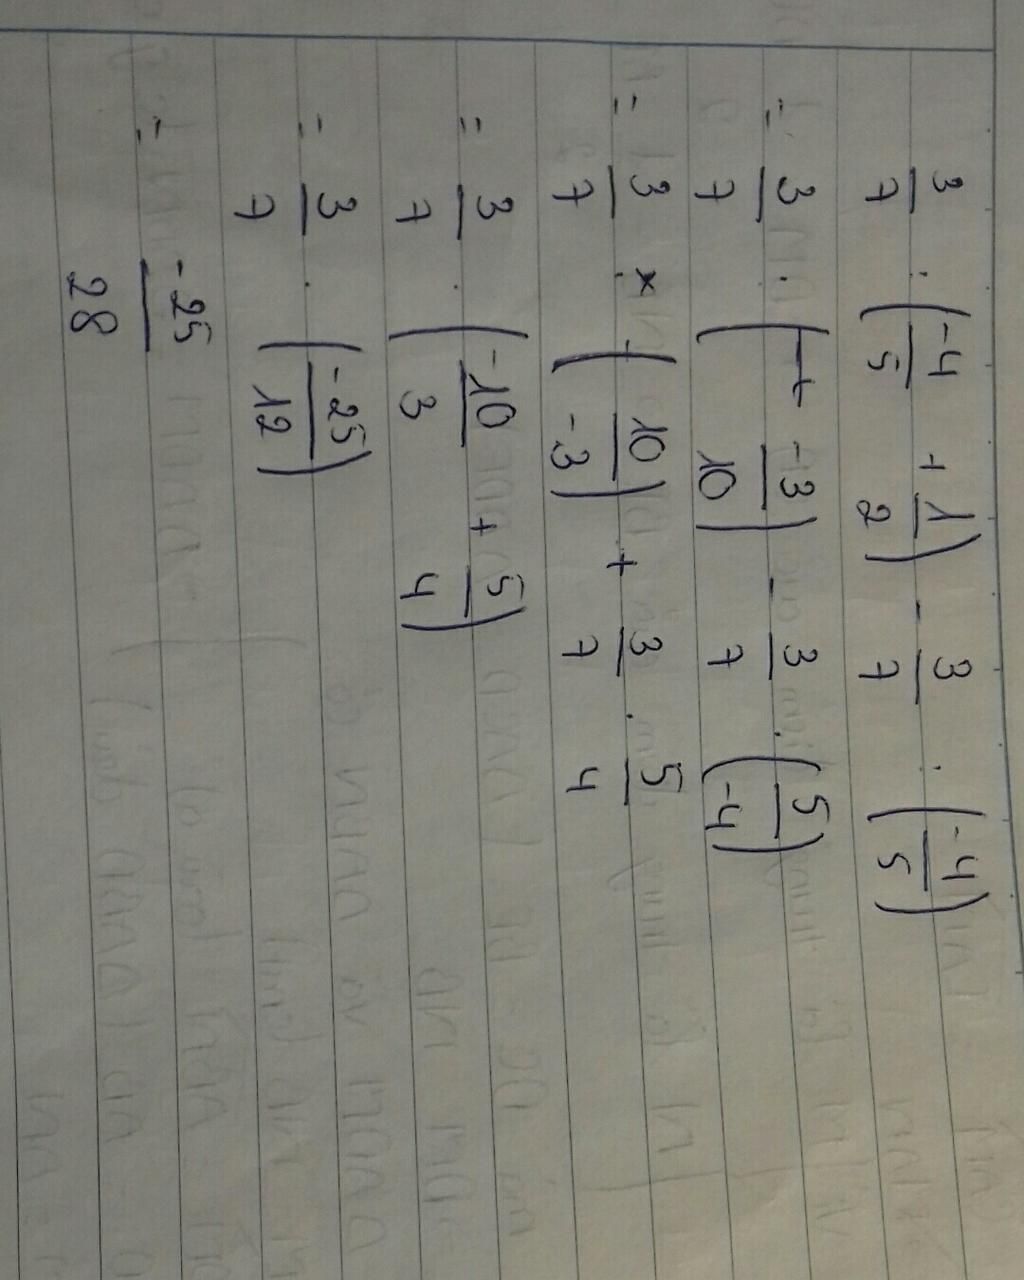 3/7 : (-4/5 + 1/2) - 3/7 : (-4/5)
= 3/7 : (-3/10) - 3/7 . (5/-4)
= 3/7 × (10/-3) + 3/7 . 5/4
= 3/7 . (-10/3 + 5/4)
= 3/7 . (-25/12)
= -25/28